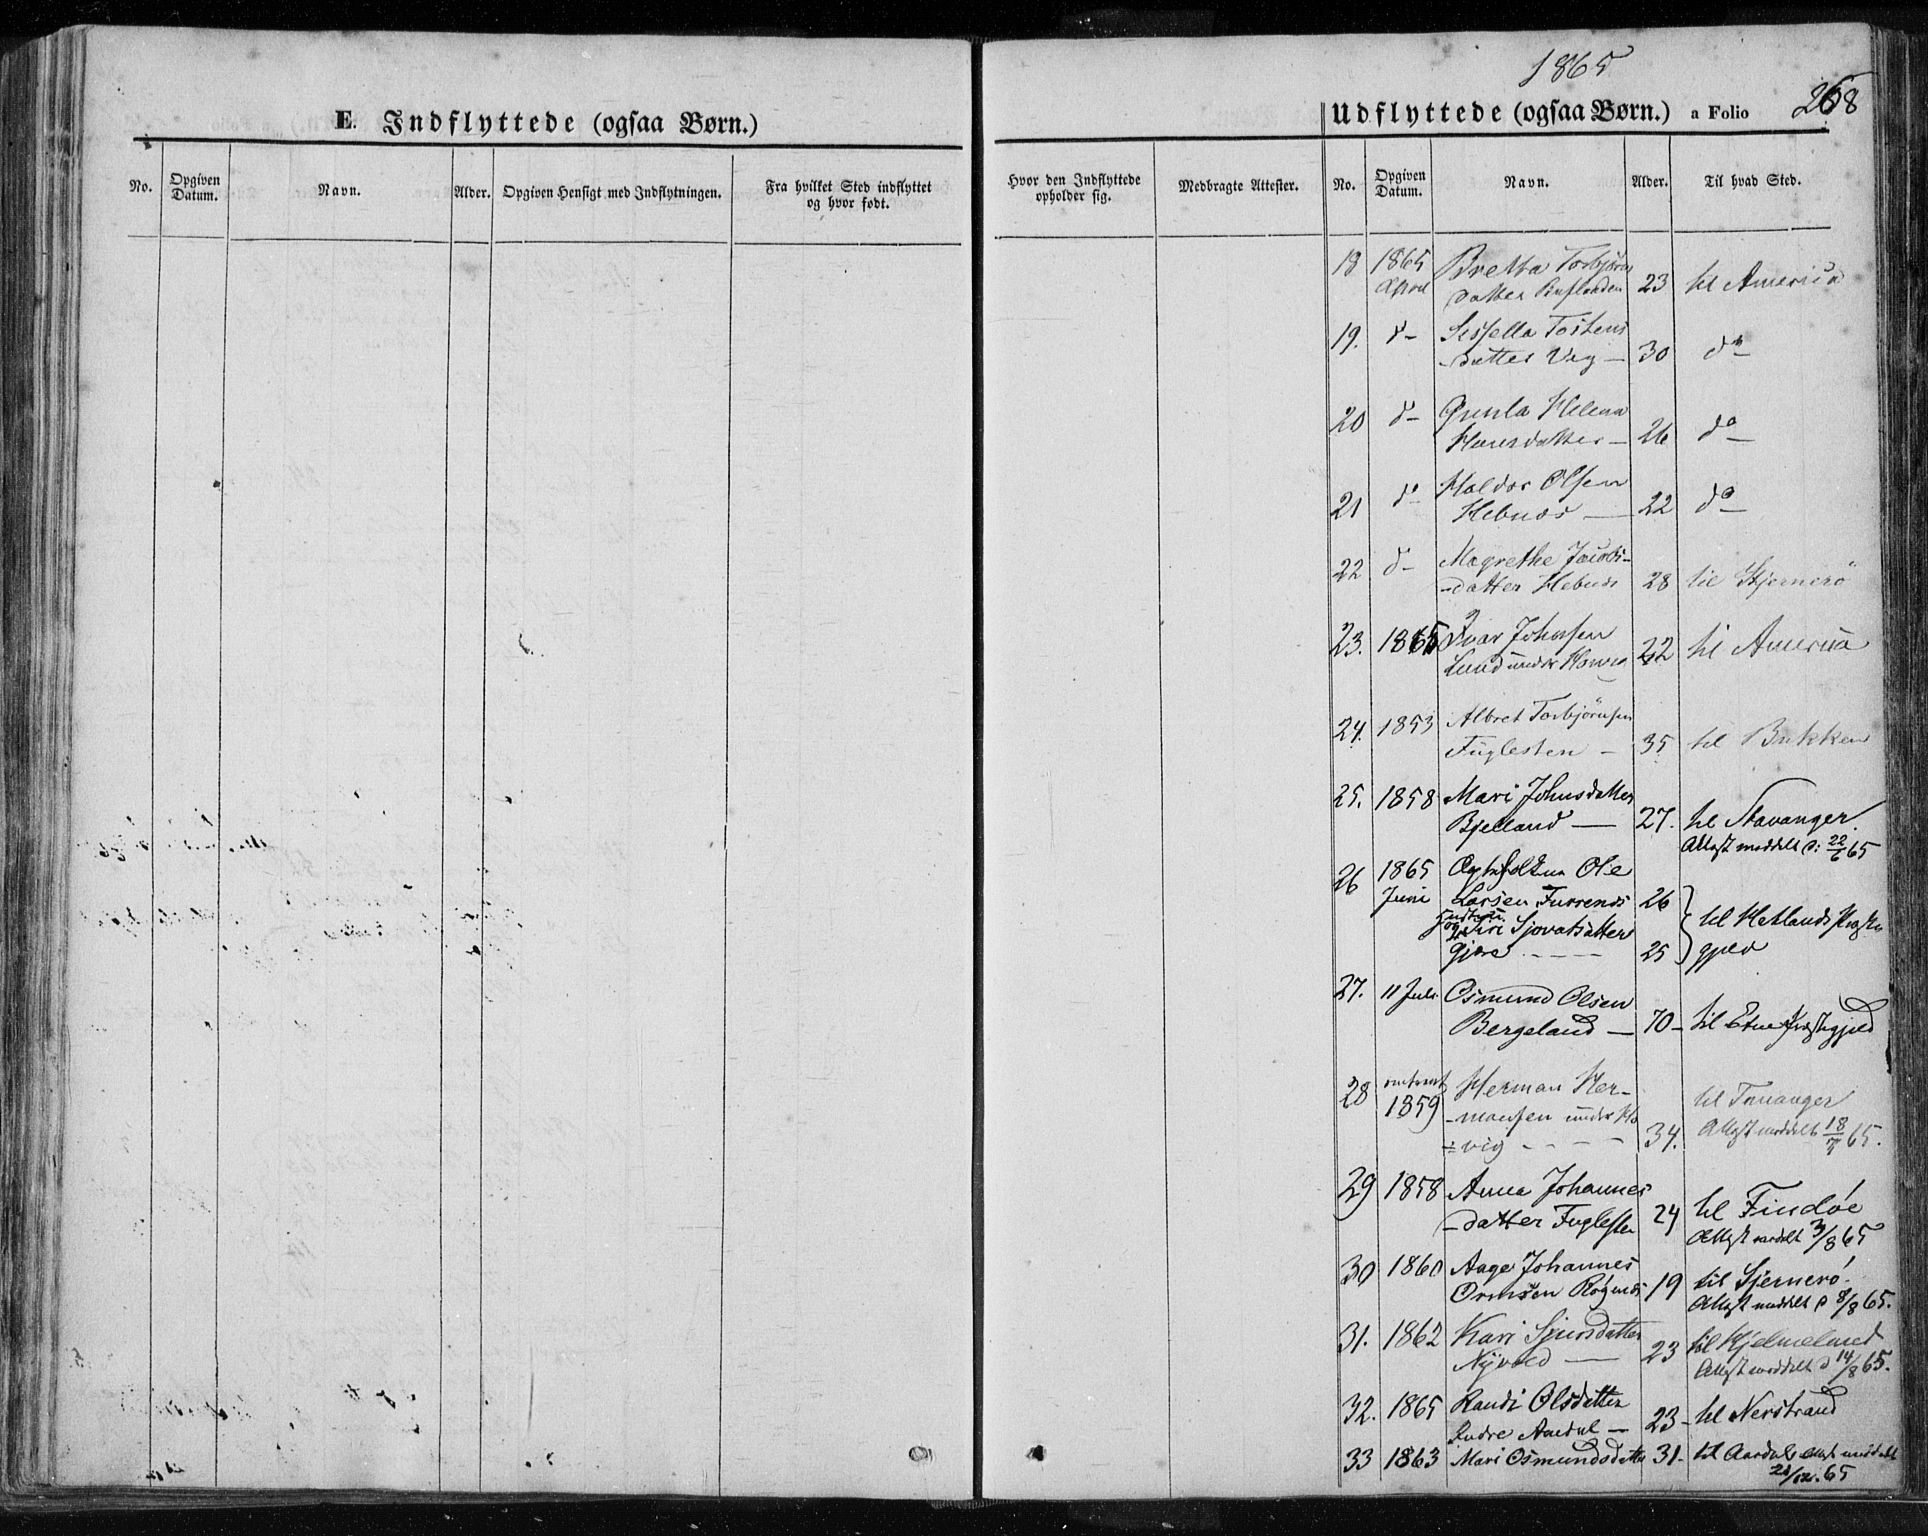 1865
268
E. Indflyttede (ogsaa Børn.)
Udflyttede (ogsaa Børn.) a Folio
No.
Opgiven Datum.
Navn.
Alder.
Opgiven Hensigt med Indflytningen.
Fra hvilket Sted indflyttet
og hvor født.
Hvor den Indflyttede
opholder sig.
Medbragte Attester.
No.
Opgiven Datum.
Navn.
Alder.
Til hvad Sted.
18 1865 Bretha Torbjørns
April datter 23 til America
19. d- Sissella Tostens
datter Vig — 30 do
20 d- Gunla Helena
Hansdatter — 26 do
21 do Haldor Olsen
Hebnes — 22 do
22 d- Magrethe Jacobs-
-datter Hebnes 28 til Stjernerö
23. 1865 Ivar Johnsen
Lund under 22 til America
24. 1853 Albret Torbjörnsen
Fuglesten — 35 til Bukken
25. 1858 Mari Johnsdatter
Bjelland — 27. til Stavanger.
Attest meddelt d: 22/6 65
26 1865 Ole
Juni Larsen 26
og Siri Sjovatsdatter til Hetlands Præste
Gjere - - - - 25 gjeld
27. 11 Juli Osmund Olsen
Bergeland — 70 - til Etne Præstegjeld
28 omtrent Herman Her-
1859 -mansen under Ho
=vig - - - - 34. til Tananger
Attest meddelt 18/7 65.
29 1858 Anna Johannes
-datter Fuglesten 24 til Findöe
Attest meddelt 3/8 65
30 1860 Aage Johannes
Ormsen 19 til Sjernerö.
Attest meddelt d 8/8 65.
31. 1862 Kari Sjursdatter
Nyvold — 23 til Hjelmeland
Attest meddelt d 14/8 65.
32. 1865 Randi Olsdatter
Indre Aadal — 23 - til Nerstrand
33 1863 Mari Osmundsdatter 31 - til Aardal Attest meddelt
21/12. 65